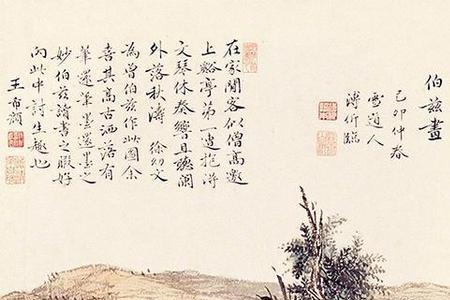 伯茲畫
己卯仲春
雪道人
溥忻臨
在家閒客似僧高邀
上谿亭第一遭抱得
文琴休奏響且聽闌
外落秋濤 徐幼文
為曾伯茲作此圖余
喜其高古洒落有
筆還筆墨還墨之
妙伯茲讀書之暇好
向此中討生趣也
王